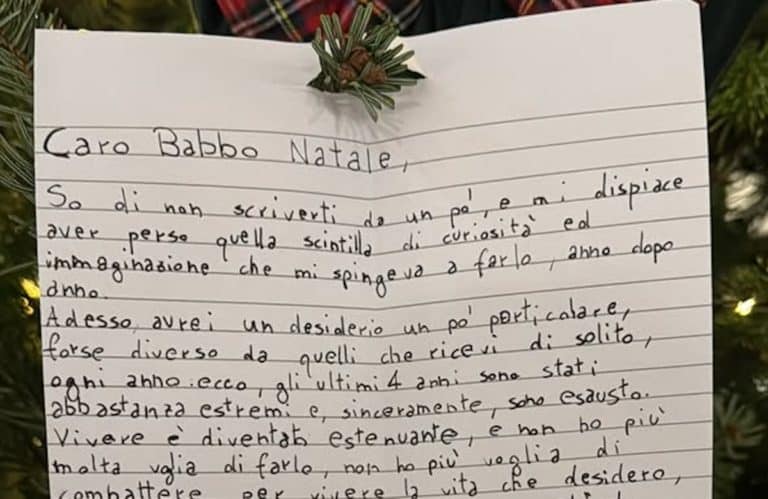 Caro Babbo Natale,
So di non scriverti da un po', e mi dispiace
aver perso quella scintilla di curiosità ed
immaginazione che mi spingeva a farlo, anno dopo
anno.
Adesso, avrei un desiderio un po' particalare,
forse diverso da quelli che ricevi di solito,
ogni anno: ecco, gli ultimi 4 anni sono stati
abbastanza estremi e, sinceramente, sono esausto.
Vivere è diventato estenuante, e non ho più
molta voglia di farlo, non ho più voglia di
combattere per vivere la vita che desidero,